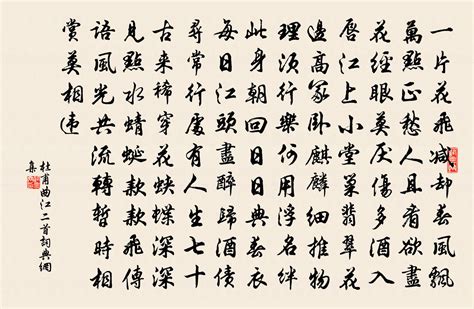 一片花飛減却春風飄
萬點正愁人且看欲盡
花經眼莫厭傷多酒入
唇江上小堂巢翡翠花
邊高冢卧麒麟細推物
理須行樂何用浮名絆
此身朝回日日典春衣
每日江頭盡醉歸酒債
尋常行處有人生七十
古來稀穿花蛺蝶深深
見點水蜻蜓款款飛傳
語風光共流轉暫時相
賞莫相違
杜甫曲江二首詞典網
集